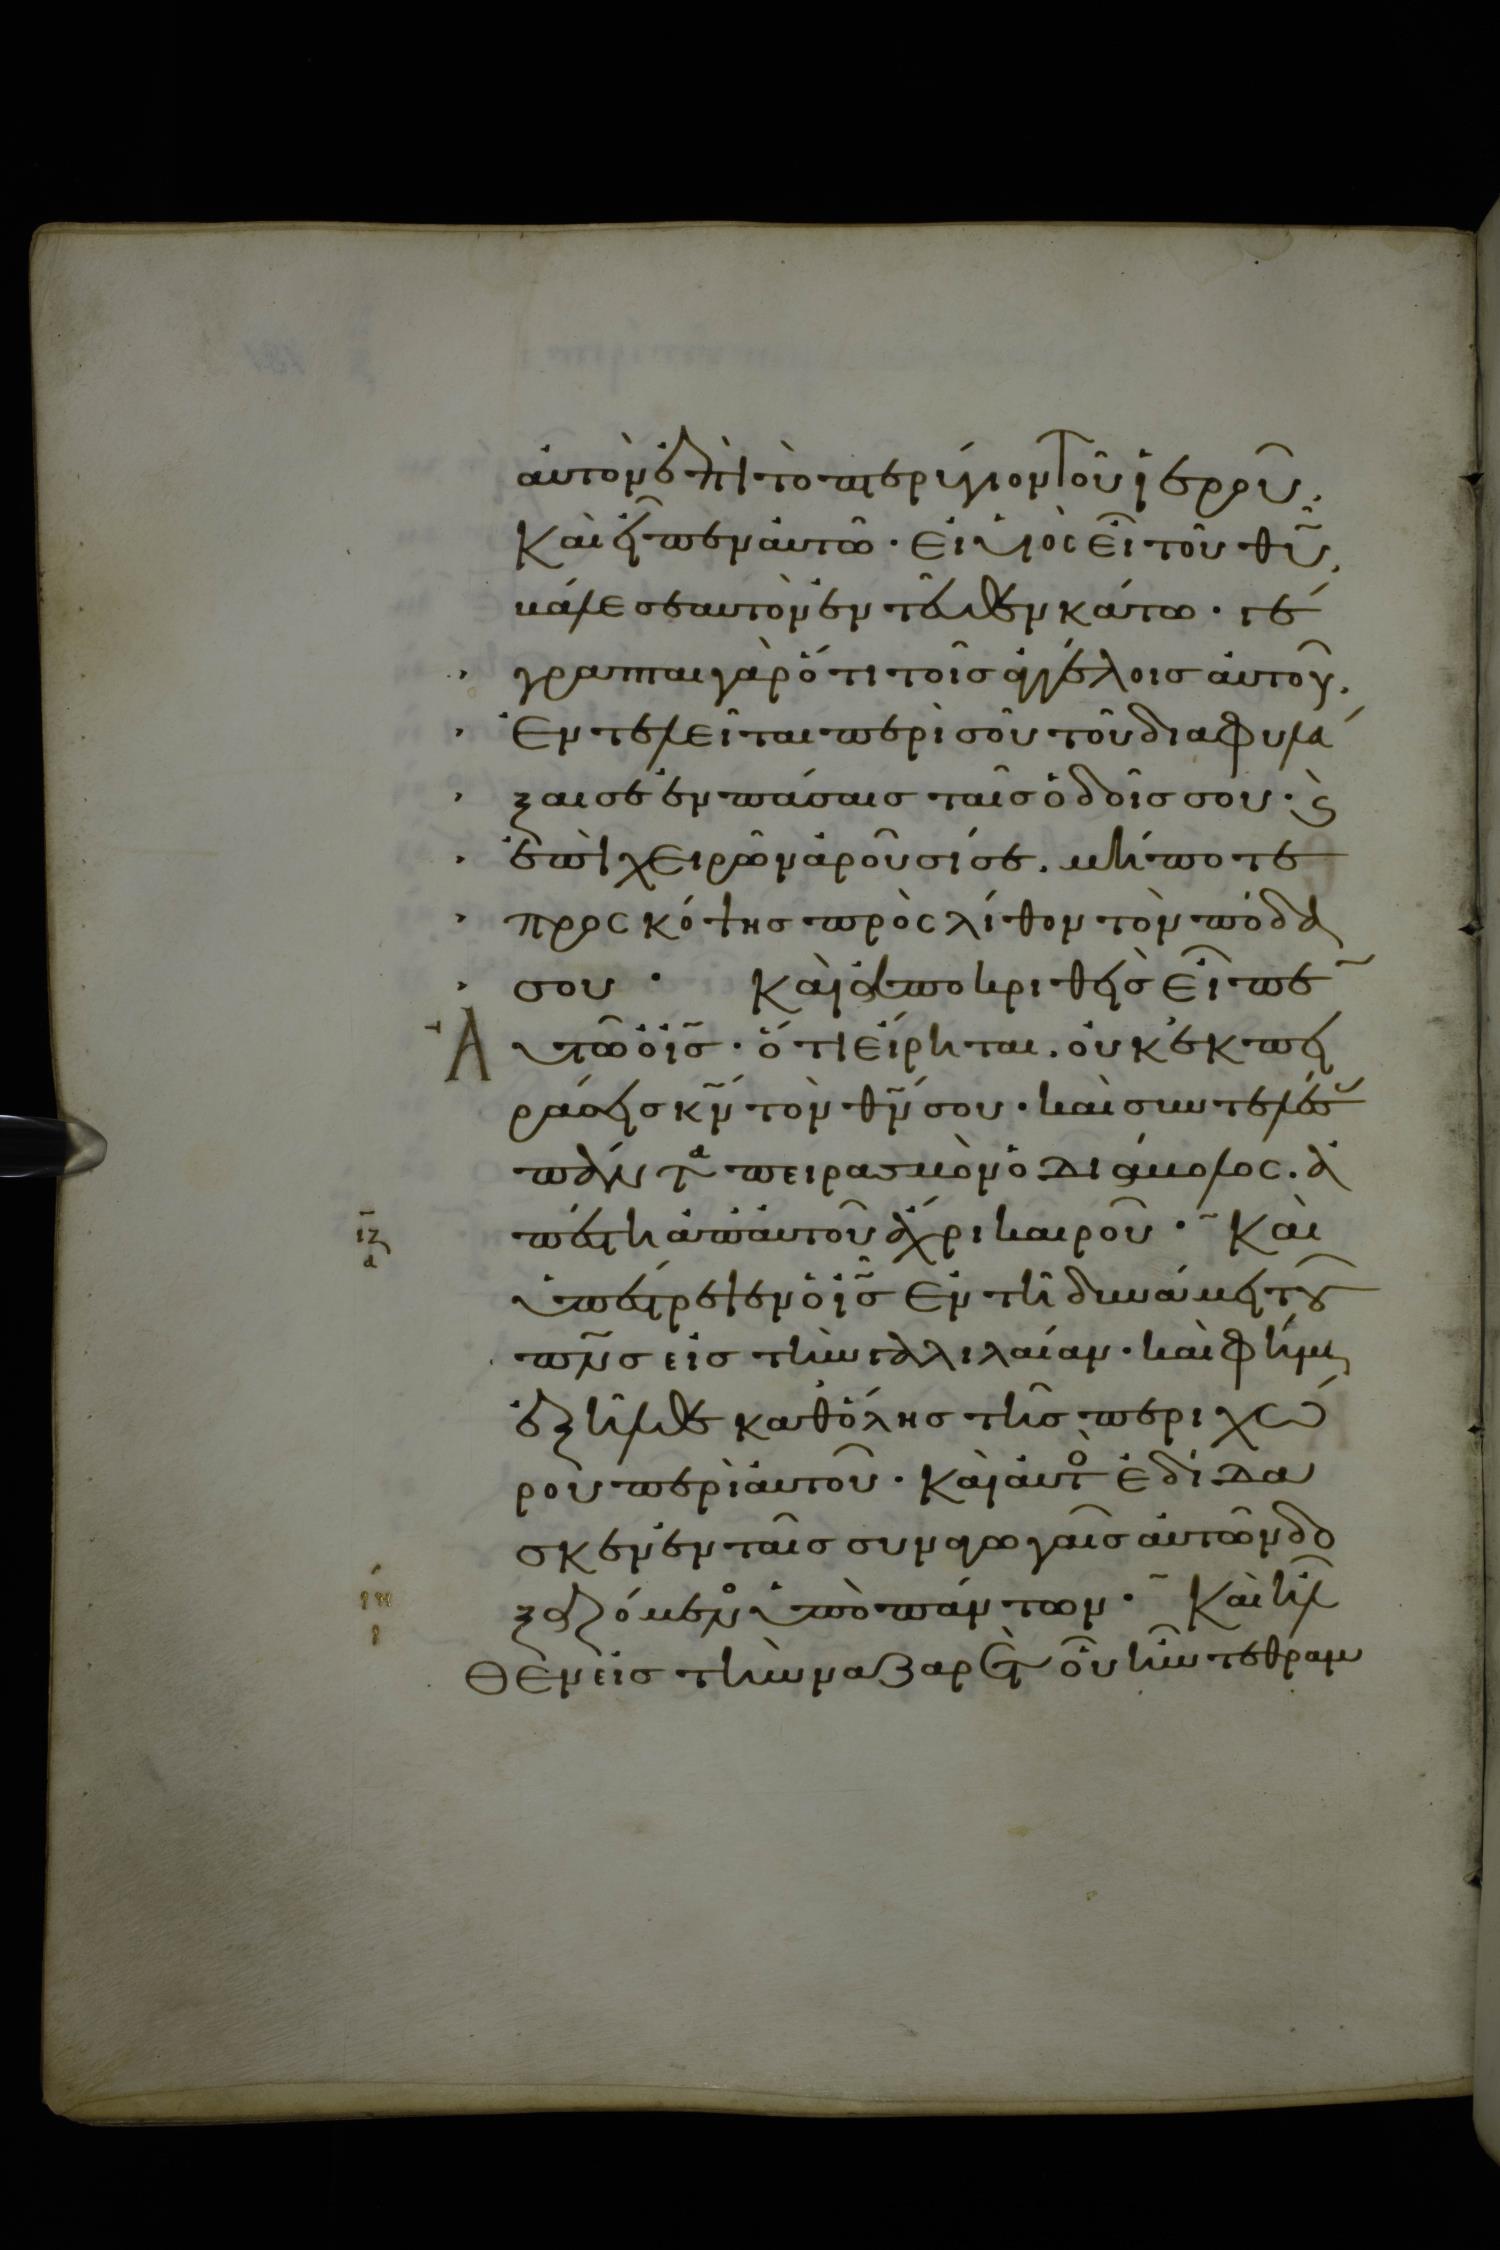 αὐτὸν ἐπὶ τὸ πτερύγιον τοῦ ἱεροῦ.
Καὶ εἶπεν αὐτῶ· εἰ υἱὸς εἶ τοῦ θῦ,
βάλε σεαυτὸν ἐντεῦθεν κάτω· γέ
γραπται γὰρ ὅτι τοῖς ἀγγέλοις αὐτοῦ,
ἐντελεῖται περὶ σοῦ τοῦ διαφυλά
ξαι σε ἐν πάσαις ταῖς ὁδοῖς σου· ϗ
ἐπὶ χειρῶν ἀροῦσί σε. μήποτε
προσκόψης πρὸς λίθον τὸν πόδα
σου· Καὶ ἀποκριθεὶς εἶπεν
Αὐτῶ ὁ ις· ὅτι εἴρηται. οὐκ ἐκπει
ράσεις κν τὸν θν σου· καὶ συντελέσας
πάντα πειρασμὸν ὁ διάβολος. ἀ
πέστη ἀπ αὐτοῦ ἄχρι καιροῦ· Καὶ
ιζ
α
ὑπέστρεψεν ὁ ις ἐν τῆ δυνάμει τοῦ
πνς εἰς τὴν γαλιλαίαν· καὶ φήμη
ἐξῆλθε καθ ὅλης τῆς περιχώ
ρου περὶ αὐτοῦ· Καὶ αὐτὸς ἐδίδα
σκεν ἐν ταῖς συναγωγαῖς αὐτῶν δο
ξαζόμενος ὑπὸ πάντων· Καὶ ἦλ
θεν εἰς τὴν ναζαρὲτ οὗ ἦν τεθραμ